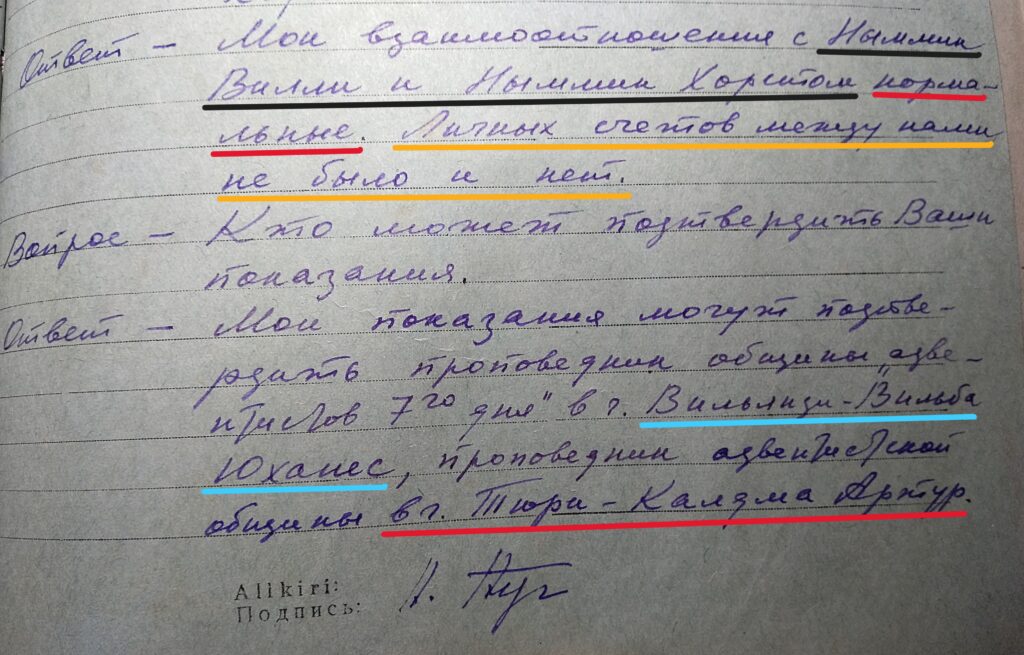 Ответ — Мои взаимоотношения с Ныммик
Вилли и Ныммик Хорстом норма-
льные. Личных счетов между нами
не было и нет.
Вопрос — Кто может подтвердить Ваши
показания.
Ответ — Мои показания могут подтве-
рдить проповедник общины „адве-
нтистов 7го дня" в г. Вильянди - Вильба
Юханес, проповедник адвентистской
общины в г. Тюри - Калдма Артур.
Allkiri:
Подпись: